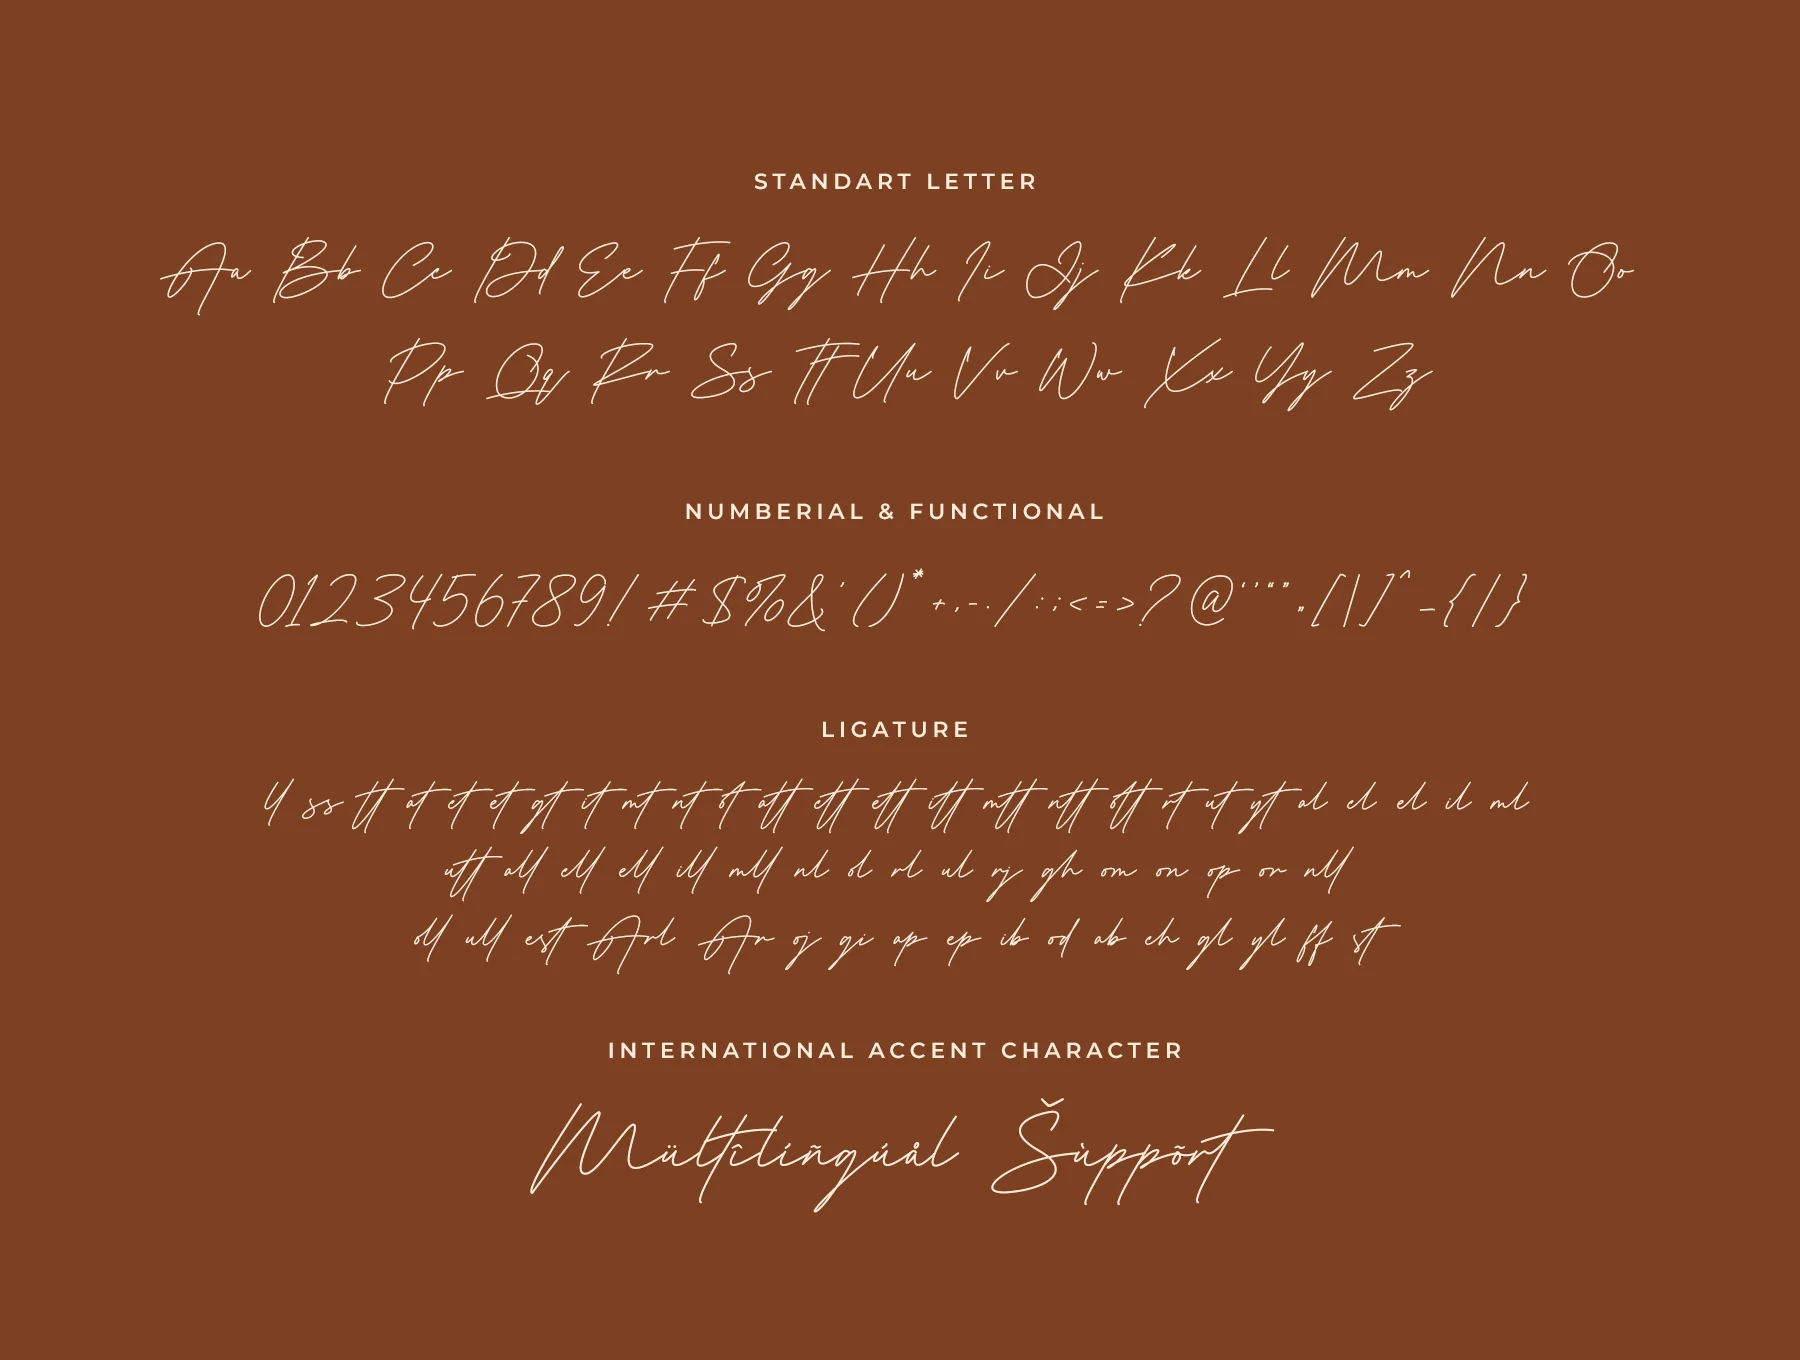 STANDART LETTER
Aa Bb Cc Dd Ee Ff Gg Hh Ii Jj Kk Ll Mm Nn Oo
Pp Qq Rr Ss Tt Uu Vv Ww Xx Yy Zz
NUMBERIAL & FUNCTIONAL
0123456789! #$%&'()*+,-./:;<=>?@‘’“”„[|]^_{|}
LIGATURE
ss tt at ct et gt it mt nt ot att ctt ett itt mtt ntt ott rt ut yt al cl el il ml
utt all cll ell ill mll nl ol rl ul rj gh om on op or nll
oll ull est Arl Ar oj gi ap ep ib od ab ch gl yl ff st
INTERNATIONAL ACCENT CHARACTER
Mültîlíñgúål Šùppõrt